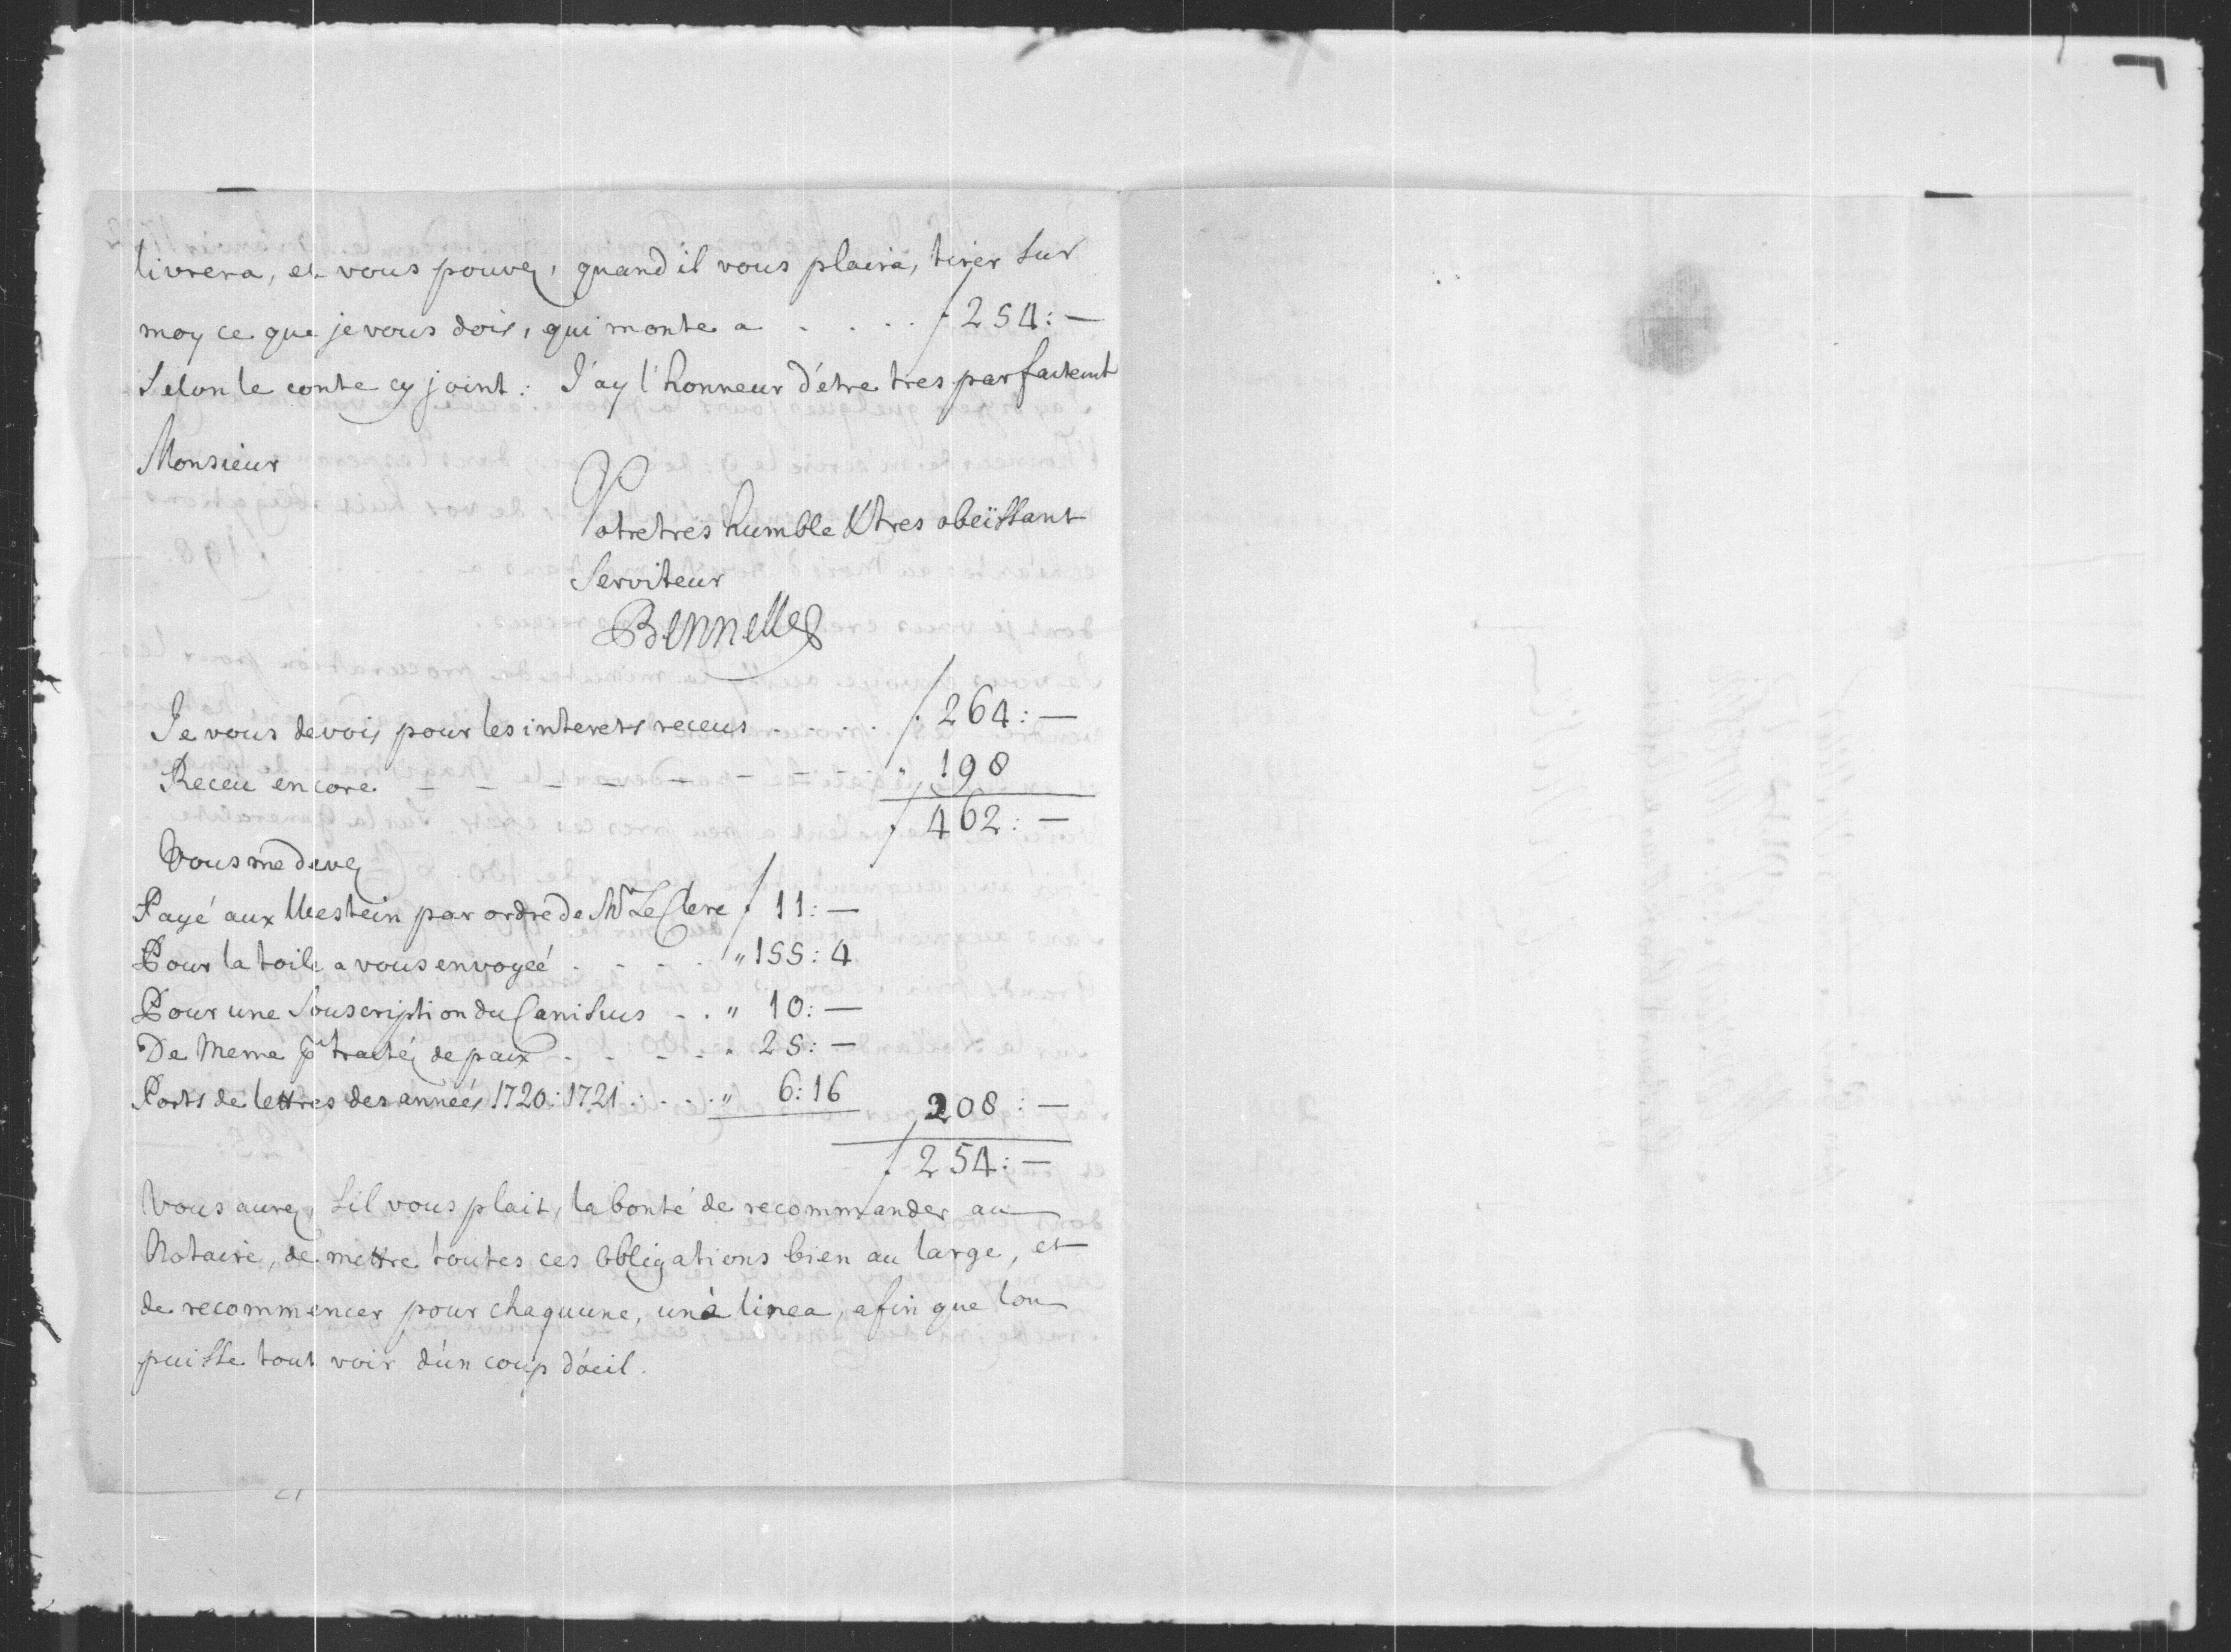 livrera, et vous pouvez, quand il vous plaira, tirer sur
moy ce que je vous dois, qui monte a . . . . f 254:—
selon le conte cy joint: J'ay l'honneur d'étre tres parfaitemt
Monsieur
Votre tres humble & tres obeïssant
Serviteur
Bennelle
Je vous devois pour les interets receus . . . . . f. 264:—
Receu encore — — — — — — — — " 198
f. 462:—
Vous me devez
Payé aux Westein par ordre de Mr Le Clerc f. 11:—
Pour la toile a vous envoyeé . . . . . " 155:4
Pour une Souscription du Canisius . . " 10:—
De Meme pr traitéz de paix . . . . . " 25:—
Ports de lettres des anneés 1720:1721 . . . . " 6:16 208:—
f. 254:—
Vous aurez, s'il vous plait, la bonté de recommander au
Notaire, de mettre toutes ces obligations bien au large, et
de recommencer pour chaquune, un à linea, afin que lon
puisse tout voir d'un coup d'oeil.